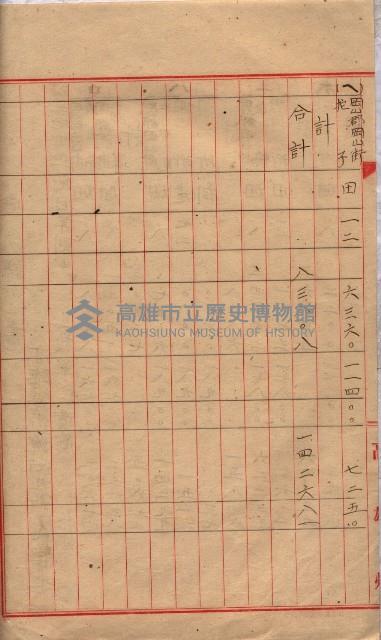 岡山郡岡山街
挖子 田 一二 六三六〇 一一四〇〇 七二五〇
計
合計 八三〇〇八 一四二六八一
高雄州
高雄市立歷史博物館
KAOHSIUNG MUSEUM OF HISTORY